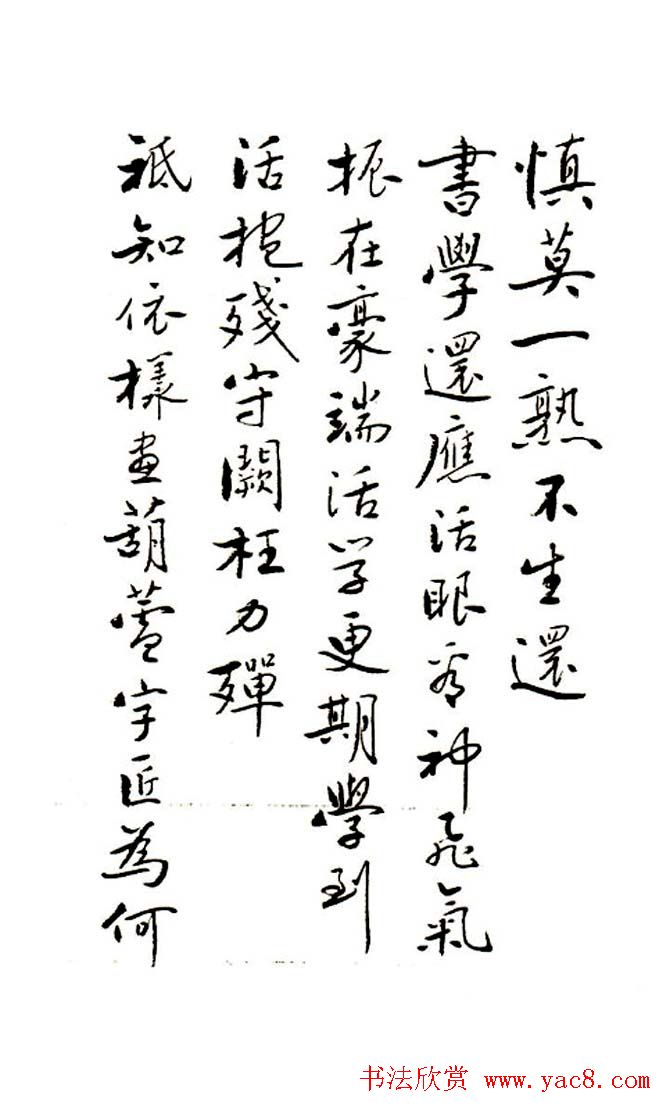 慎莫一熟不生還
書學還應活眼看神飛氣
振在豪端活学更期學到
活抱殘守闕枉力殫
祗知依樣畫葫蘆字匠為何
书法欣赏 www.yac8.com